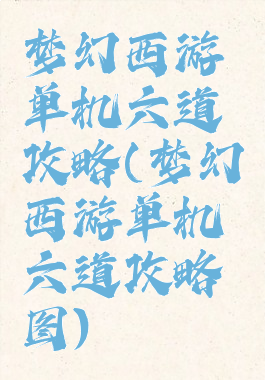 梦幻西游
单机六道
攻略(梦幻
西游单机
六道攻略
图)